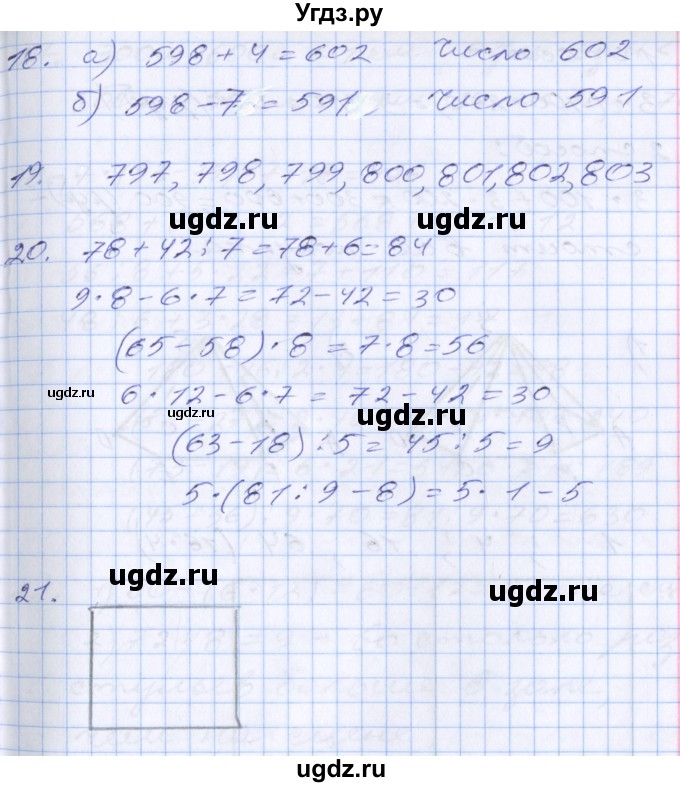 Угдз.ру
18. а) 598 + 4 = 602 Число 602
б) 598 - 7 = 591 Число 591
19. 797, 798, 799, 800, 801, 802, 803
ugdz.ru ugdz.ru
20. 78 + 42 : 7 = 78 + 6 = 84
9 · 8 - 6 · 7 = 72 - 42 = 30
(65 - 58) · 8 = 7 · 8 = 56
ugdz.ru
6 · 12 - 6 · 7 = 72 - 42 = 30
ugdz.ru ugdz.ru
(63 - 18) : 5 = 45 : 5 = 9
5 · (81 : 9 - 8) = 5 · 1 - 5
ugdz.ru
21.
ugdz.ru
ugdz.ru